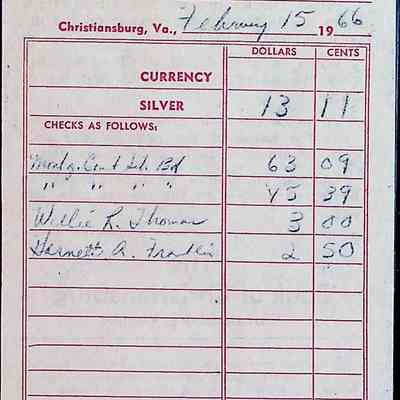 Christiansburg, Va., February 15 1966
DOLLARS CENTS
CURRENCY
SILVER 13 11
CHECKS AS FOLLOWS:
Montg. Co. Sch. Bd 63 09
" " " " 45 39
Willie R. Thomas 3 00
Garnett A. Franklin 2 50